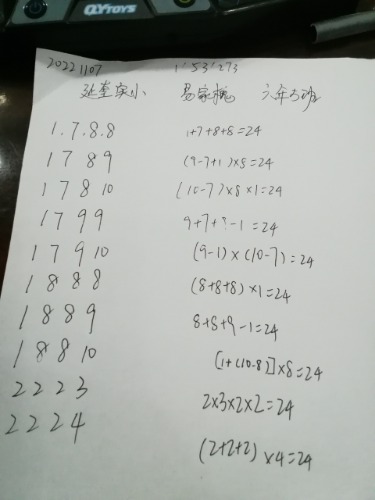 QYTOYS
20221107 1'53'273
延奎实小 六年5班
1.7.8.8 1+7+8+8=24
1 7 8 9 (9-7+1)×8=24
1 7 8 10 (10-7)×8×1=24
1 7 9 9 9+7+9-1=24
1 7 9 10 (9-1)×(10-7)=24
1 8 8 8 (8+8+8)×1=24
1 8 8 9 8+8+9-1=24
1 8 8 10 [1+(10-8)]×8=24
2 2 2 3 2×3×2×2=24
2 2 2 4 (2+2+2)×4=24